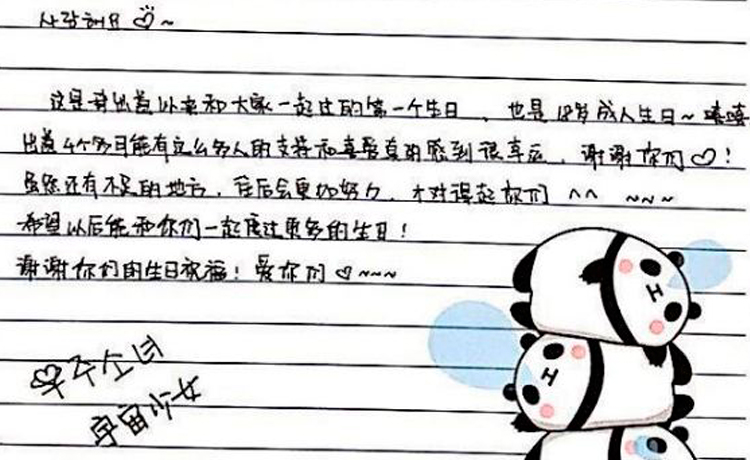 사랑해요 ♡~
这是我出道以来和大家一起过的第一个生日，也是18岁成人生日~嘻嘻
出道4个多月能有这么多人的支持和喜爱真的感到很幸运，谢谢你们♡！
虽然还有不足的地方，往后会更加努力，才对得起你们 ^^ ~~~
希望以后能和你们一起度过更多的生日！
谢谢你们的生日祝福！爱你们♡~~~
우주소녀
宇宙少女